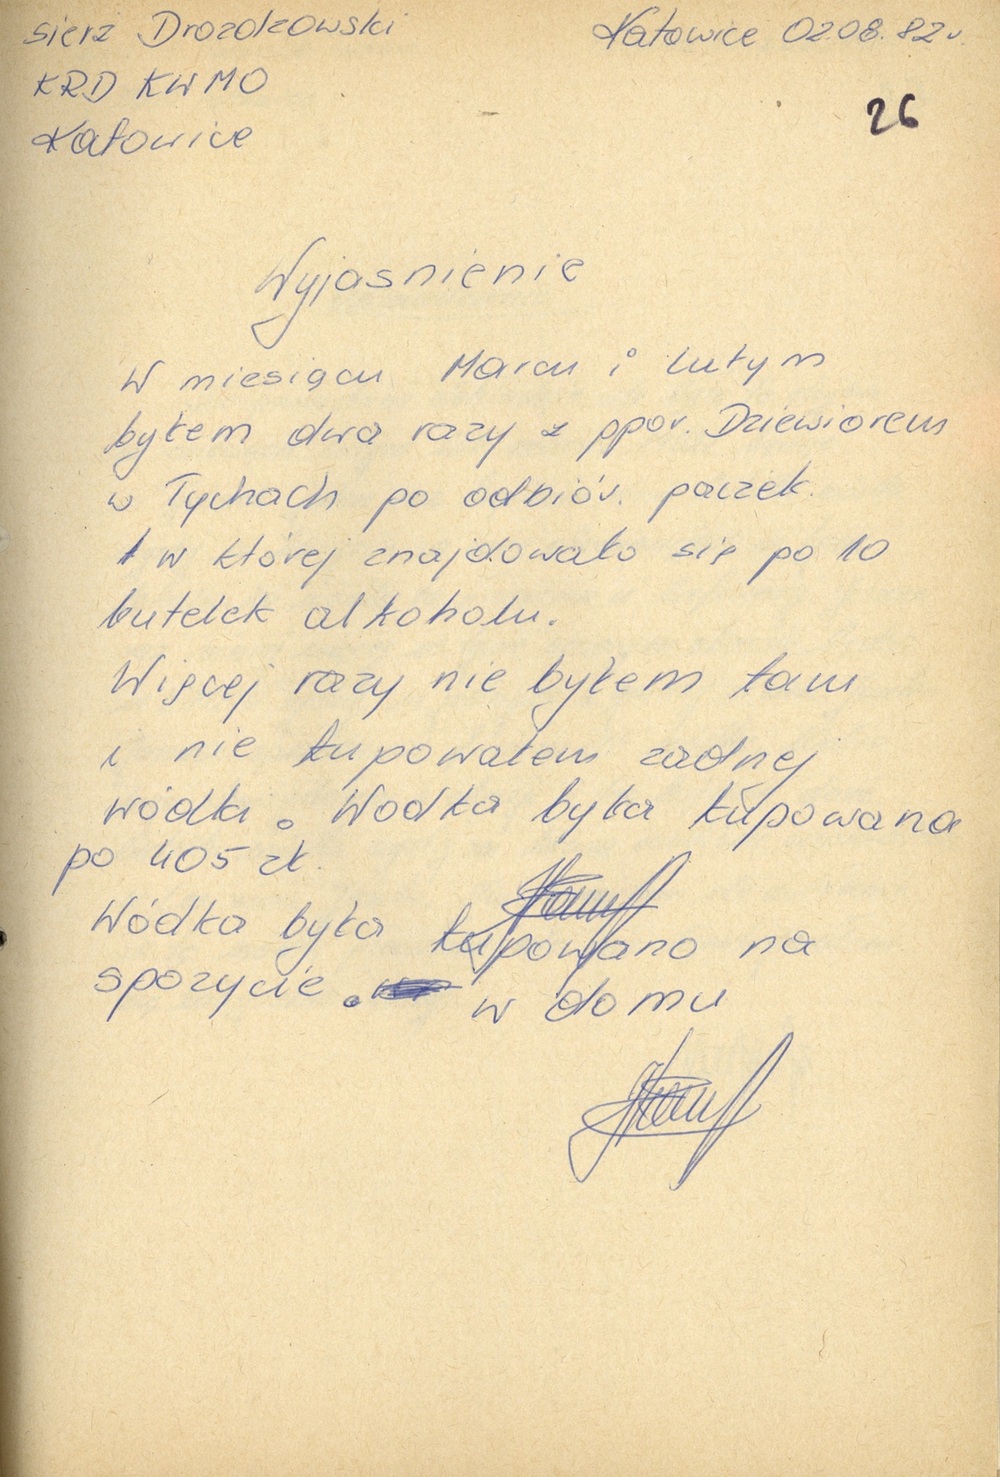 sierż Drozdzowski
Katowice 02.08.82 r.
KRD KWMO
26
Katowice
Wyjasnienie
W miesiącu Marcu i Lutym
byłem dwa razy z ppor. Dziewiorem
w Tychach po odbiór. paczek.
w której znajdowało się po 10
butelek alkoholu.
Więcej razy nie byłem tam
i nie kupowałem zadnej
wódki. Wodka była kupowana
po 405 zł.
Wódka była kupowano na
spozycie. w domu